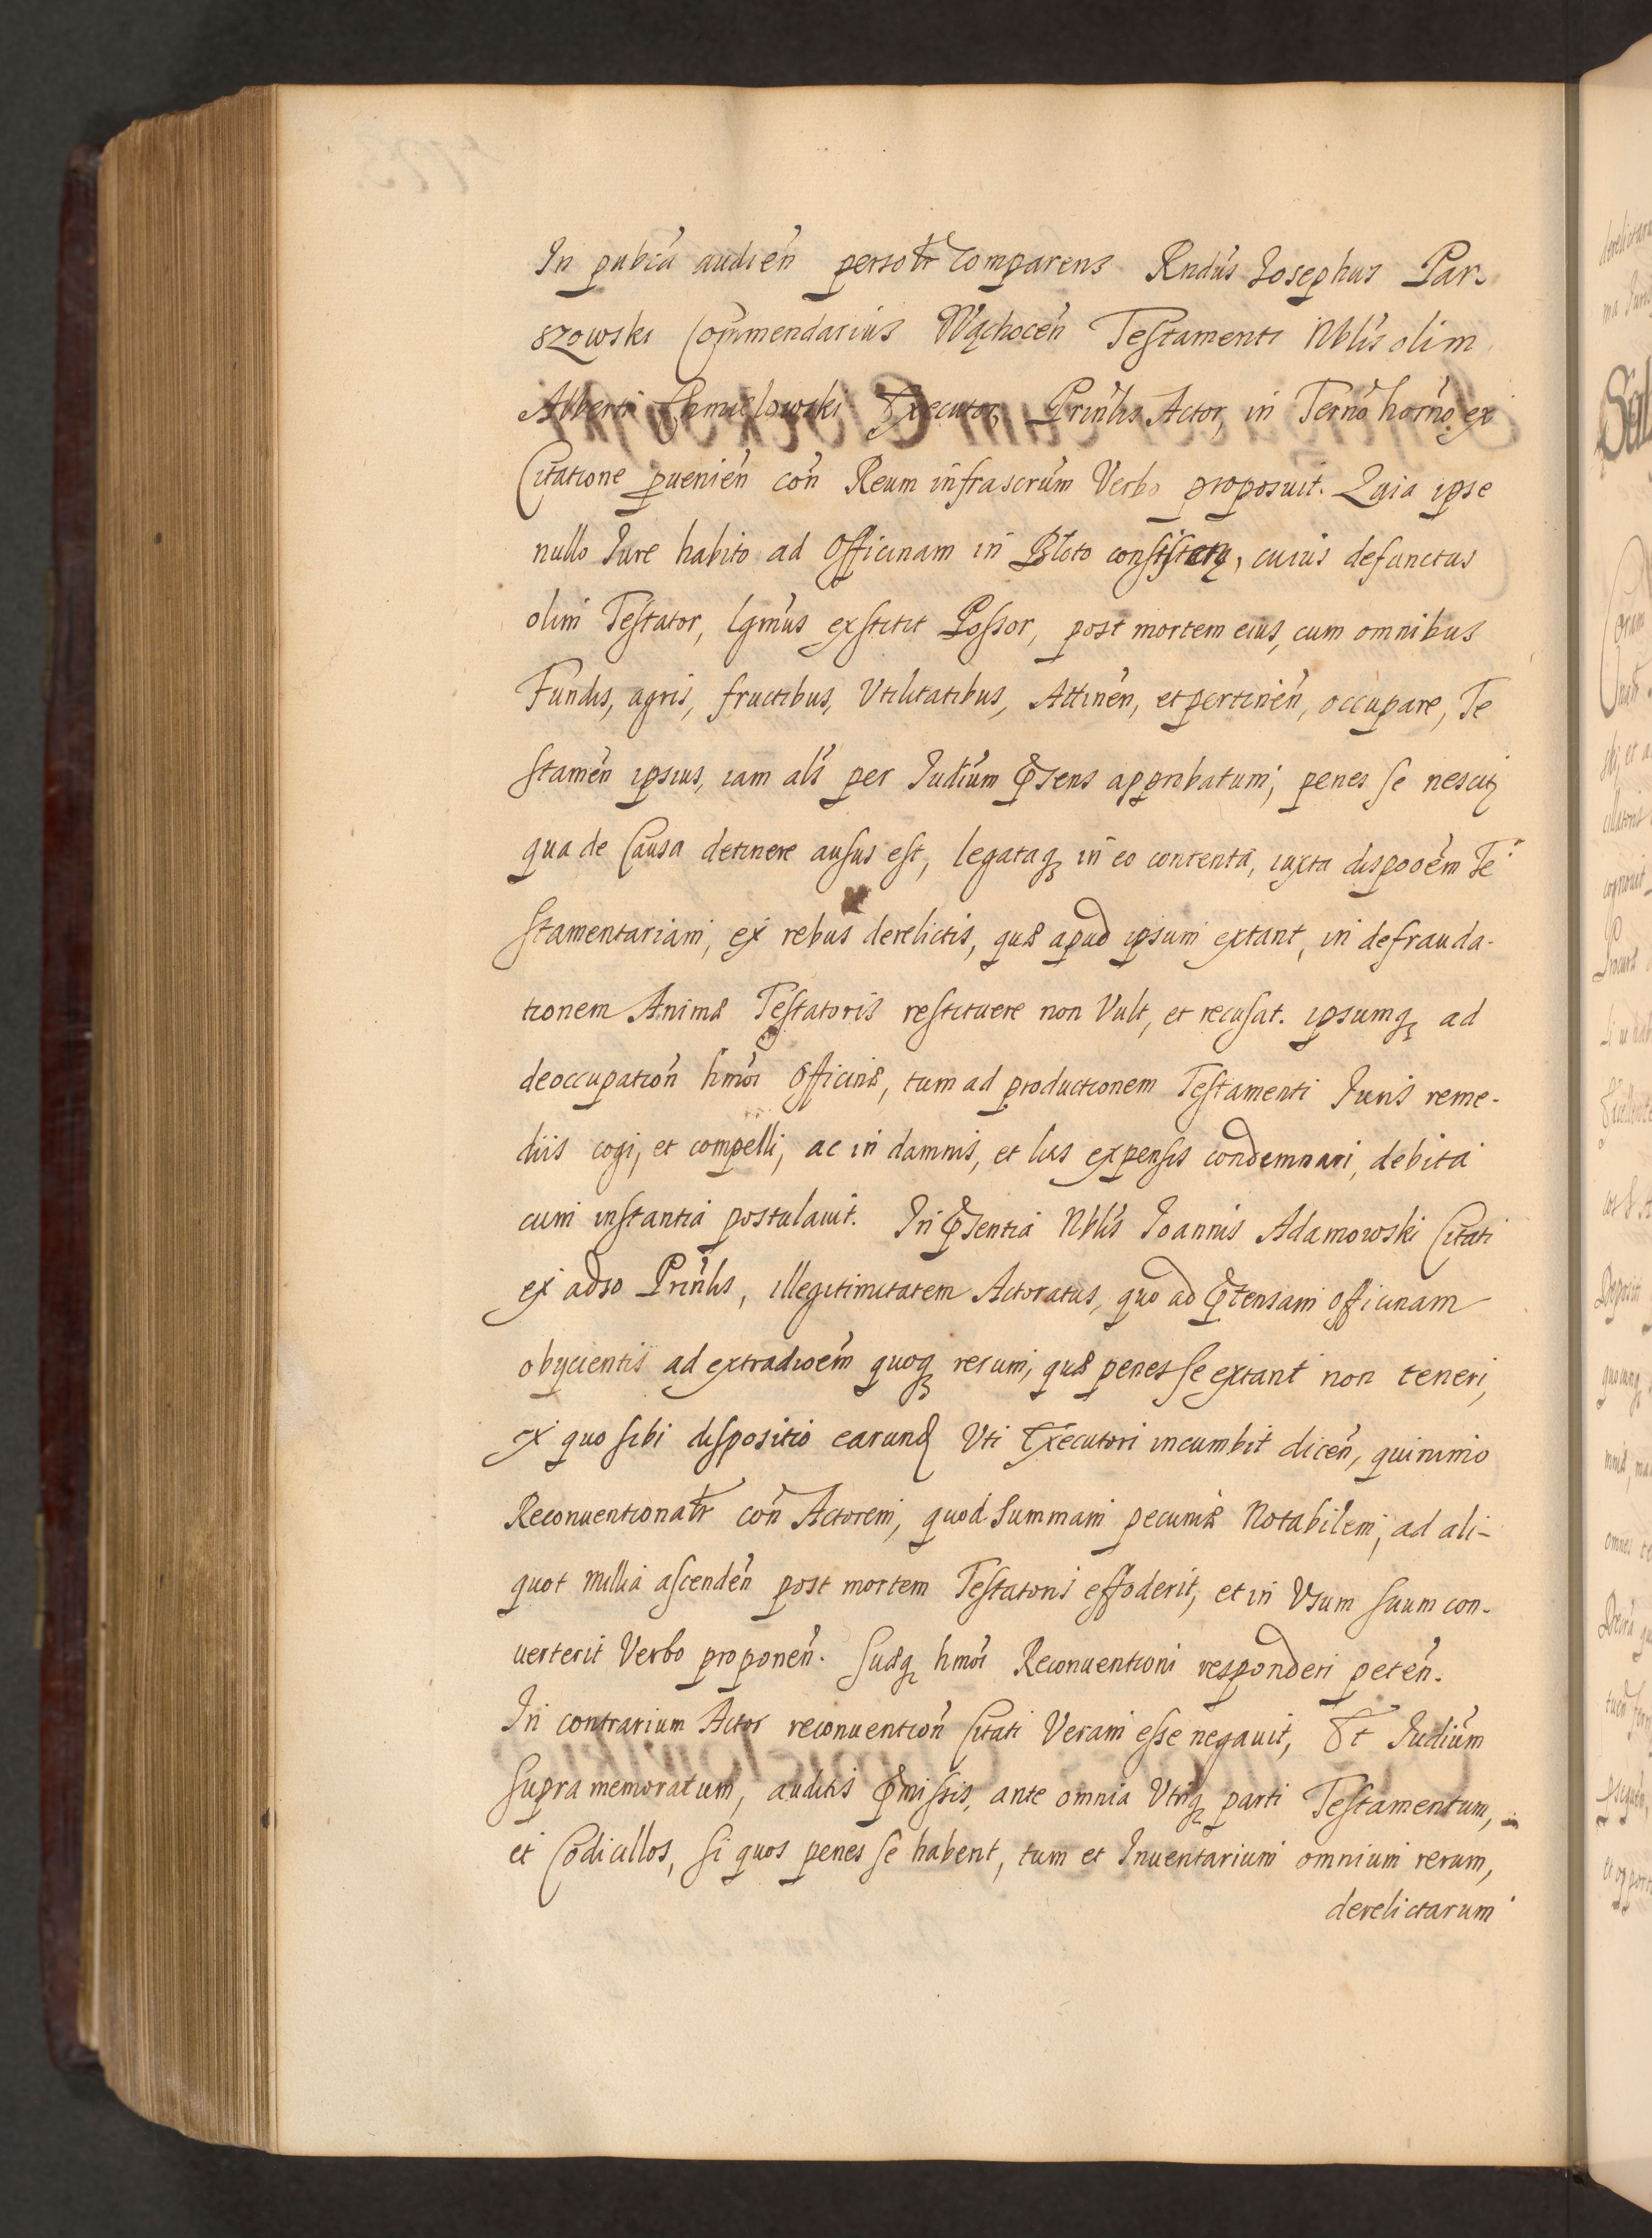 In publcã audieñ persolr̃ comparens Rndus Iosephus Par-
szowski Commendarius Wąchoceñ Testamenti Nblis olim
Alberti Chmielowski Executor, Prinlis Actor, in Termo horno ex
Citatione pueнień coñ Reum infrascrum Verbo proposuit. Quia ipse
nullo Iure habito ad Officinam in Bloto consistenẽ, cuius defunctus
olim Testator, lgmus exstitit Possor, post mortem eius, cum omnibus
Fundis, agris, fructibus, Vtilitatibus, Attineñ, et pertineñ, occupare, Te
stameñ ipsius, iam als per Iudium pñsens approbatum, penes se nescit
qua de Causa detinere ausus est, legataq; in eo contenta, iuxta disposoem Te
stamentariam, ex rebus derelictis, quæ apud ipsum extant, in defrauda-
tionem Animæ Testatoris restituere non Vult, et recusat. ipsumq; ad
deoccupationñ hmoi Officinæ, tum ad productionem Testamenti Iuris reme-
diis cogi, et compelli, ac in damnis, et litis expensis condemnari, debita
cum instantia postulauit. In pñsentia Nblis Ioannis Adamowski Citati
ex adso Prinlis, illegitimitatem Actoratus, quo ad prætensam officinam
obycientis ad extradioem quoq; rerum, quæ penes se extant non teneri,
ex quo sibi dispositio earund Vti Executori incumbit diceñ, quinimo
Reconuentionalr̃ coñ Actorem, quod Summam pecuniæ Notabilem, ad ali-
quot millia ascendeñ post mortem Testatoris effoderit, et in Vsum suum con-
uerterit Verbo proponeñ. Suæq; hmoi Reconuentioni responderi peteñ.
In contrarium Actor reconuentioñ Citati Veram esse negauit, Et Iudium
supra memoratum, auditis præmissis, ante omnia Vtriq; parti Testamentum,
et Codicillos, si quos penes se habent, tum et Inuentarium omnium rerum,
derelictarum